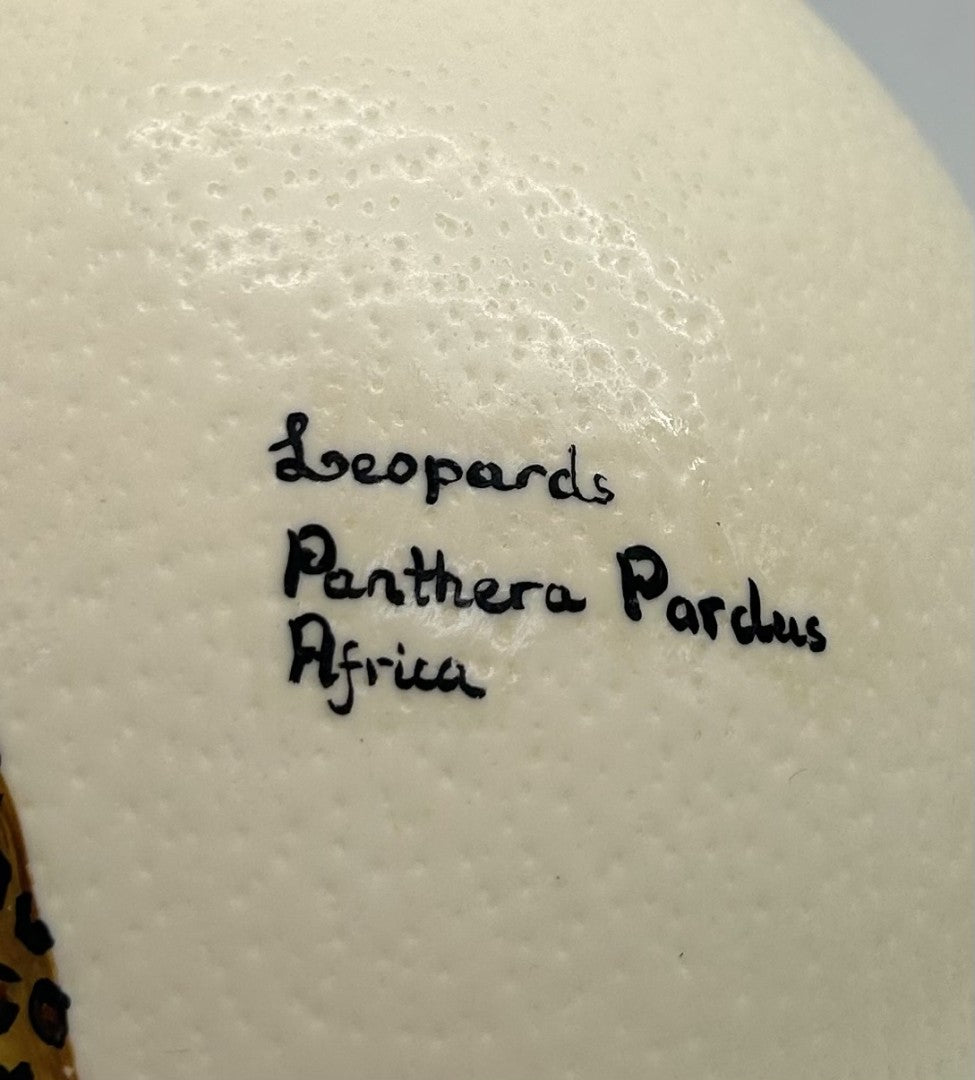 Leopards
Panthera Pardus
Africa